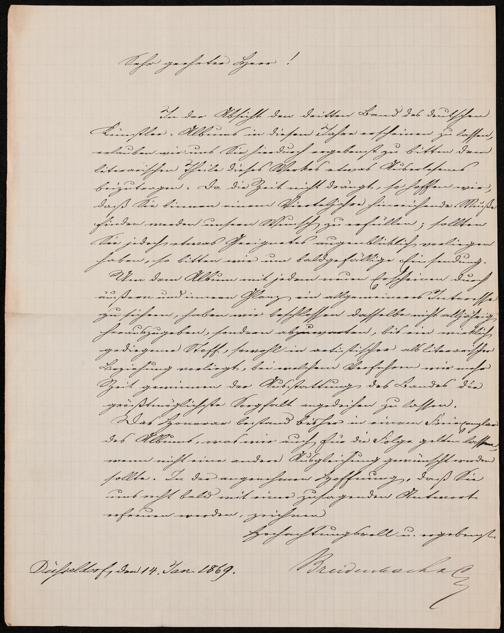 Sehr geehrter Herr!
In der Absicht den dritten Band des deutschen
Künstler-Albums in diesem Jahre erscheinen zu lassen,
erlauben wir uns Sie hierdurch ergebenst zu bitten dem
literarischen Theile dieses Werkes etwas
beizutragen. Da die Zeit nicht drängt, so hoffen wir,
daß Sie binnen einem Vierteljahre hinreichende Muße
finden werden unsern Wunsch zu erfüllen; sollten
Sie jedoch etwas Geeignetes augenblicklich vorliegen
haben, so bitten wir um baldgefällige Einsendung.
Um dem Album mit jedem neuen Erscheinen durch
äußern und innern Glanz ein allgemeineres Interesse
zu sichern, haben wir beschlossen dasselbe nicht alljährig
herauszugeben, sondern abzuwarten, bis ein wirklich
gediegener Stoff, sowohl in artistischer als literarischer
Beziehung vorliegt, bei welchem Verfahren wir mehr
Zeit gewinnen der Ausstattung des Bandes die
größtmöglichste Sorgfalt angedeihen zu lassen.
Das Honorar bestand bisher in einem Freiexemplar
des Albums, was wir auch für die Folge gelten lassen,
wenn nicht eine andere Ausgleichung gewünscht werden
sollte. In der angenehmen Hoffnung, daß Sie
uns recht bald mit einer zusagenden Antwort
erfreuen werden, zeichnen
Hochachtungsvoll u. ergebenst
Düsseldorf, den 14. Jan. 1869.
Breidenbach & Co